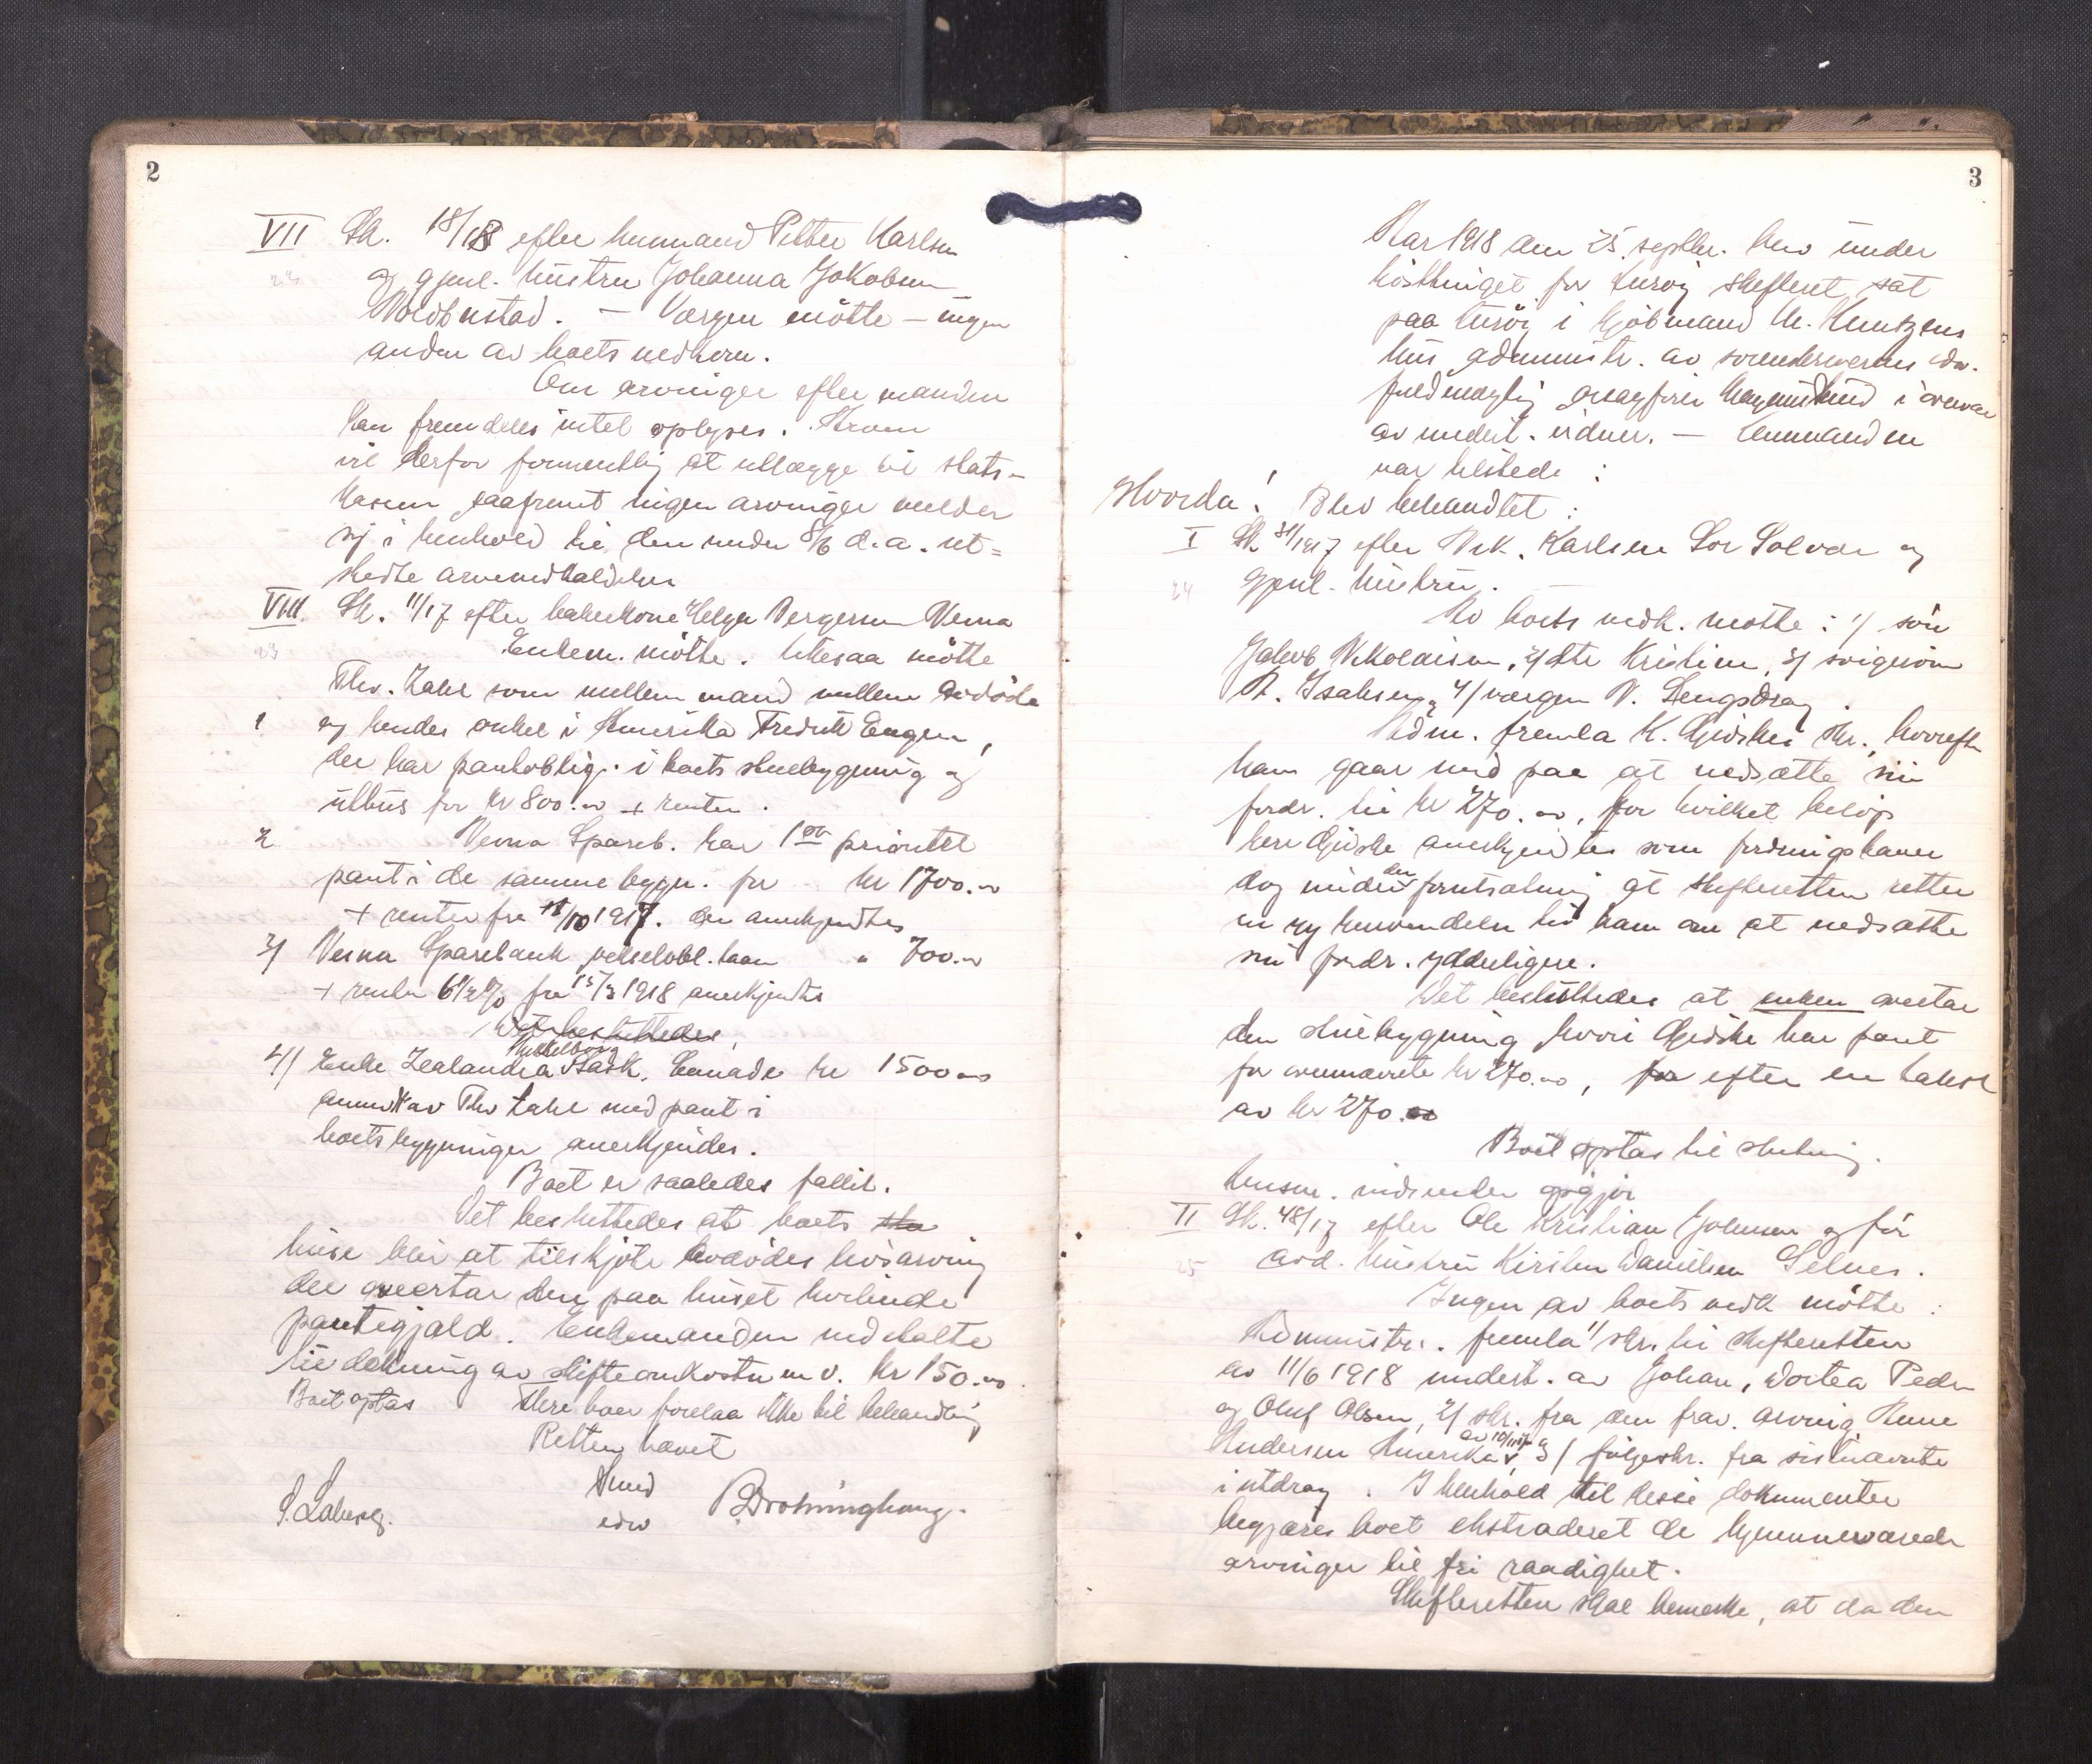 2
VII Sk. 18/18 efter Petter Karlsen
og gjenl. hustru Johanna Jakobsen
– Værgen mötte – ingen
anden av boets vedkom.
Om arvinger efter manden
kan fremdeles intet oplyses. Arven
vil derfor formentlig at utlægge til stats-
kassen saafremt ingen arvinger melder
sig i henhold til den under 8/6 d.a. ut-
stedte
VIII. Sk. 11/17 efter Helga Vergersen Verna
23 Enkem. mötte. Likesaa mötte
Thv. Zahl som mellem mand mellem avdöde
1 og hendes onkel i Amerika Fredrik Eugen,
der har pantoblig. i boets stuebygning og
uthus for kr 800.00 + renter.
2 Verna Spareb. har 1ste prioritet
pant i de samme bygn. for kr 1700.00
+ renter fra 18/10 1917. den anerkjendtes
3/ Verna Sparebank vekselobl. laan " 700.00
+ renter 6½% fra 15/3 1918 anerkjendtes
Det besluttedes
4/ Enke Zealandia Canada kr 1500.00
anm. av Thv Zahl med pant i
boets bygninger anerkjendes.
Boet er saaledes fallit.
Det besluttedes at boets
huse blir at tilskjöte avdödes livsarving
der overtar den paa huset hvilende
pantegjæld. Enkemanden indbetalte
til dekning av skifteomkostn m.v. kr 150.00.
Boet optas Flere boer forelaa ikke til behandling
Retten hævet
S. Laberg. Amed B. Drotninghaug.
edv
3
Aar 1918 den 25. septbr. blev under
hösttinget for Kurøy skifteret sat
paa Kuröy i kjöbmand M. Kuntzens
hus administr. av sorenskriverens edsv.
fuldmægtig i overvær
av undert. vidner. – Lensmanden
var tilstede :
Hvorda! Blev behandlet :
I Sk. 31/1917 efter Nik. Karlsen Sör Solvær og
24 gjenl. hustru.
Av boets vedk. mötte : 1/ sön
Jakob Nikolaisen, 2/ dtr Kristine, 3/ svigersön
A. Isaksen, 4/ værgen N. Lengsdrag.
Adm. fremla K. Gjöskes skr., hvorefter
han gaar med paa at nedsætte sin
fordr. til kr 270.00, for hvilket belöp
herr Gjöske anerkjendtes som fordringshaver
dog under den forutsætning at skifteretten retter
en ny henvendelse til ham om at nedsætte
sin fordr. ydderligere.
Det besluttedes at enken overtar
den stuebygning hvori Gjöske har pant
for ovennævnte kr 270.00, for efter en takst
av kr 270.00
Boet optas til slutning.
Lensm. indsender opgjör
II Sk. 48/17 efter Ole Kristian Johnsen og för
25 avd. hustru Kirsten Danielsen Selnes.
Ingen av boets vedk mötte :
Administr. fremla 1/ skr. til skifteretten
av 11/6 1918 undert. av Johan, Dortea Peder
og Oluf Olsen, 2/ skr. fra den frav. arving Anne
Andersen Amerika av 10/11 17 og 3/ fölgeskr. fra sistnævnte
i utdrag. I henhold til disse dokumenter
begjæres boet ekstraderet de hjemmeværende
arvinger til fri raadighet.
Skifteretten skal bemerke, at da den